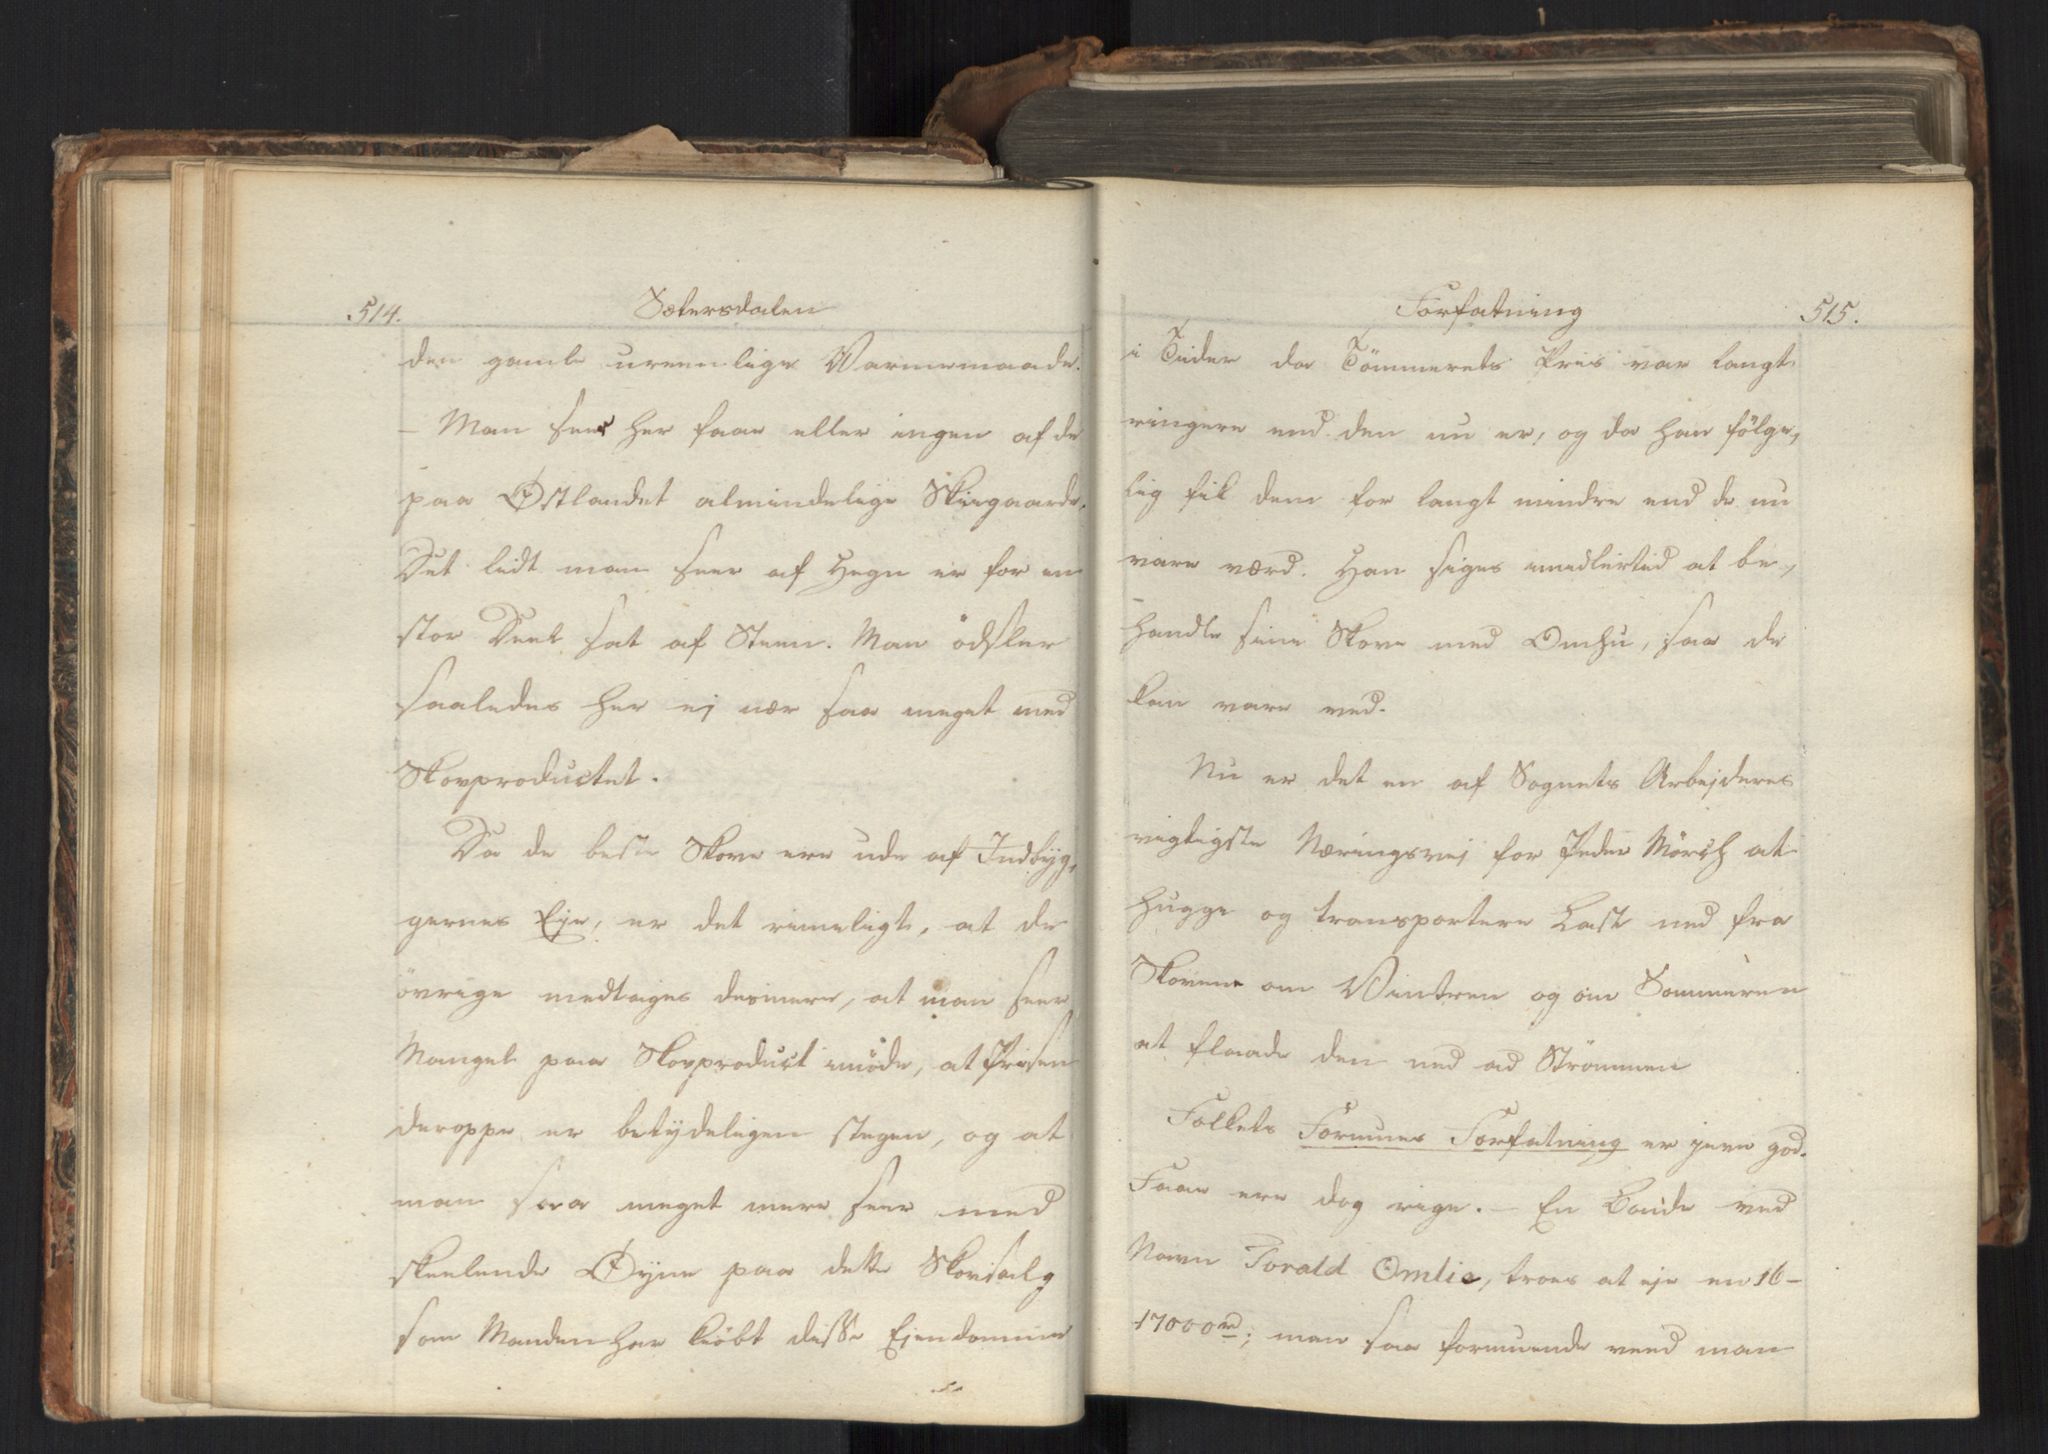 514.
Sætersdalen
den gamle ureenlige Varmemaade.
– Man seer her faae eller ingen af de
paa Østlandet almindelige Skiegaarde.
Det lidt man seer af Hegn er for en
stor Deel sat af Steen. Man ödsler
saaledes her ej nær saa meget med
Skovproductet.
Da de beste Skove ere ude af Indbyg,
gernes Eje, er det rimeligt, at de
övrige medtages desmere, at man seer
Mangel paa Skovproduct imöde, at Prisen
deroppe er betydeligen stegen, og at
man saa meget mere seer med
skeelende Øyne paa dette Skovsalg
som Manden har kiöbt disse Ejendomme
Forfatning
515.
i Tider da Tömmerets Priis var langt
ringere end den nu er, og da han fölge,
lig fik dem for langt mindre end de nu
vare værd. Han siges imidlertid at be,
handle sine Skove med Omhu, saa de
kan vare ved.
Nu er det en af Sognets Arbejderes
vigtigste Næringsvej for Peder Mörch at
hugge og transportere Last ned fra
Skovene om Vintren og om Sommeren
at flaade den ned ad Strömmen
Folkets Formues Forfatning er jevn god.
Faae ere dog rige. – En Bonde ved
Navn Torald Omlie, troes at eje en 16–
17000 rd; men saa formuende veed man